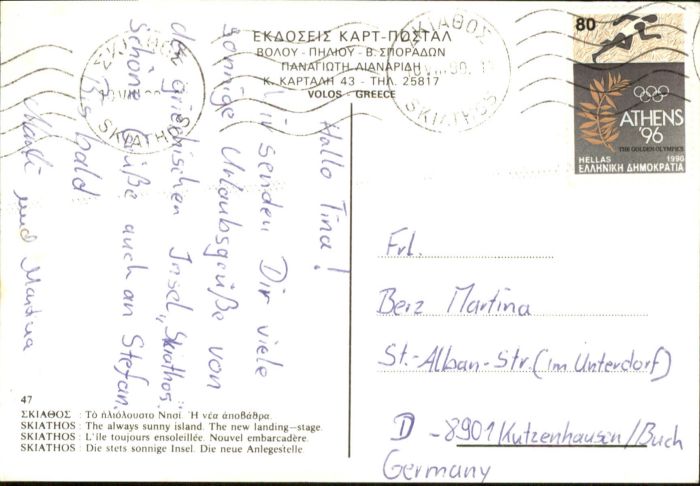 ΕΚΔΟΣΕΙΣ ΚΑΡΤ-ΠΟΣΤΑΛ
ΒΟΛΟΥ - ΠΗΛΙΟΥ - Β. ΣΠΟΡΑΔΩΝ
ΠΑΝΑΓΙΩΤΗ ΛΙΑΝΑΡΙΔΗ
Κ. ΚΑΡΤΑΛΗ 43 - ΤΗΛ. 25817
VOLOS - GREECE
ΣΚΙΑΘΟΣ
SKIATHOS
ΣΚΙΑΘΟΣ
SKIATHOS
80
ATHENS
'96
THE GOLDEN OLYMPICS
HELLAS 1990
ΕΛΛΗΝΙΚΗ ΔΗΜΟΚΡΑΤΙΑ
Hallo Tina!
Wir senden Dir viele
sonnige Urlaubsgrüße von
der griechischen Insel „Skiathos".
Schöne Grüße auch an Stefan.
Bis bald
und Martina
Frl.
Berz Martina
St.-Alban-Str. (im Unterdorf)
D - 8901 Kutzenhausen/Buch
Germany
47
ΣΚΙΑΘΟΣ : Τὸ ἡλιόλουστο Νησί. Ἡ νέα ἀποβάθρα.
SKIATHOS : The always sunny island. The new landing-stage.
SKIATHOS : L'île toujours ensoleillée. Nouvel embarcadère.
SKIATHOS : Die stets sonnige Insel. Die neue Anlegestelle.